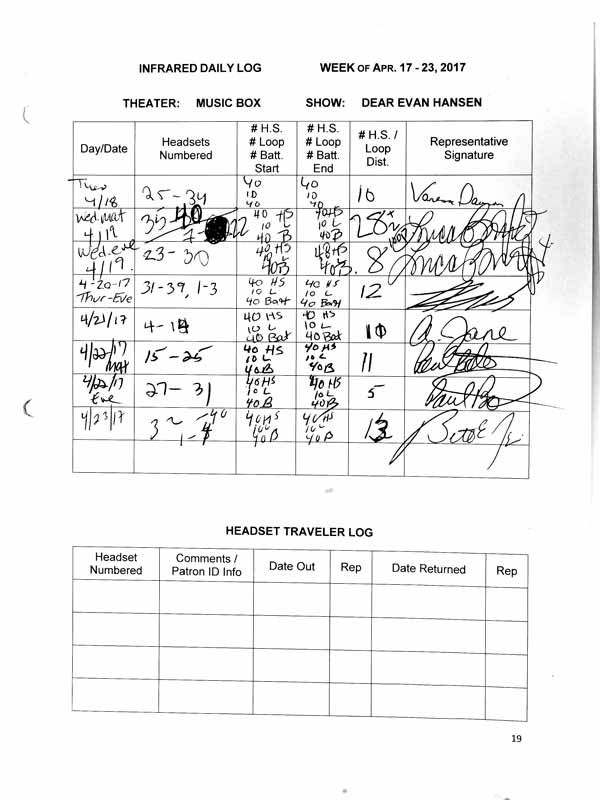 INFRARED DAILY LOG WEEK OF APR. 17 - 23, 2017
THEATER: MUSIC BOX SHOW: DEAR EVAN HANSEN
Day/Date Headsets Numbered # H.S. # Loop # Batt. Start # H.S. # Loop # Batt. End # H.S. / Loop Dist. Representative Signature
Tues 4/18 25-34 40 10 40 40 10 40 10
Wed. Mat 4/19 40 HS 10 L 40 B 40 HS 10 L 40 B 28
Wed. eve 4/19. 23-30 40 HS 10 L 40B 40B. 8
4-20-17 Thur-Eve 31-39, 1-3 40 HS 10 L 40 Batt 40 HS 10 L 40 Batt 12
4/21/17 4-14 40 HS 10 L 40 Bat 40 HS 10 L 40 Bat 10 A. Jane
4/22/17 Mat 15-25 40 HS 10L 40B 40 HS 10L 40B 11
4/22/17 Eve 27-31 40HS 10L 40B 40HS 10L 40B 5
4/23/17 40HS 40B 40HS 40B 13
HEADSET TRAVELER LOG
Headset Numbered Comments / Patron ID Info Date Out Rep Date Returned Rep
19